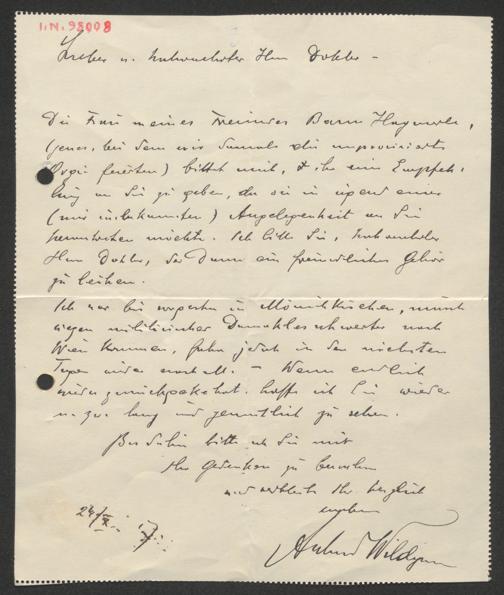 I.N. 98008
Lieber u. hochverehrter Herr Doktor –
Die Frau meines Freundes Baron Haymerle,
(jenes, bei dem wir damals die improvisierte
Orgie feierten) bittet mich, ihr eine Empfeh-
lung an Sie zu geben, da sie in irgend einer
(mir unbekannten) Angelegenheit an Sie
herantreten möchte. Ich bitte Sie, hochverehrter
Herr Doktor, der Dame ein freundliches Gehör
zu leihen.
Ich war bis vorgestern in Mönichkirchen, musste
wegen militärischer Damoklesschwerter nach
Wien kommen, fahre jedoch in den nächsten
Tagen wieder nach M. – Wenn endlich
wieder zurückgekehrt, hoffe ich Sie wieder
lang und gemütlich zu sehen.
Bis dahin bitte ich Sie mir
Ihr Gedenken zu bewahren
und verbleibe Ihr herzlich
ergebener
24/X. 17.
Anton Wildgans